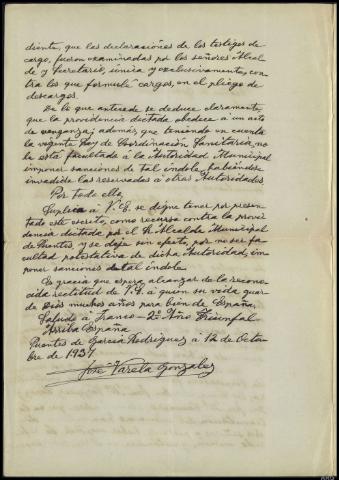 diente, que las declaraciones de los testigos de
cargo, fueron examinadas por los señores Alcal-
de y Secretario, única y exclusivamente, con-
tra los que formulé cargos, en el pliego de
descargos.
De lo que antecede se deduce claramente,
que la providencia dictada obedece a un acto
de venganza; además, que teniendo en cuenta
la vigente Ley de Coordinación Sanitaria, no
le está facultado a la Autoridad Municipal
imponer sanciones de tal índole, habiéndose
invadido las reservadas a otras Autoridades.
Por todo ello,
Suplica á V.E. se digne tener por presen-
tado este escrito, como recurso contra la provi-
dencia dictada por el Sr Alcalde Municipal
de Puentes, y se deje sin efecto, por no ser fa-
cultad potestativa de dicha Autoridad, im-
poner sanciones de tal índole.
Es gracia que espera alcanzar de la recono-
cida rectitud de V.E. á quién su vida guar-
de Dios muchos años para bién de España.
Saludo á Franco = 2º Año Triunfal
Arriba España
Puentes de Garcia Rodriguez á 12 de Octu-
bre de 1937
José Varela Gonzalez